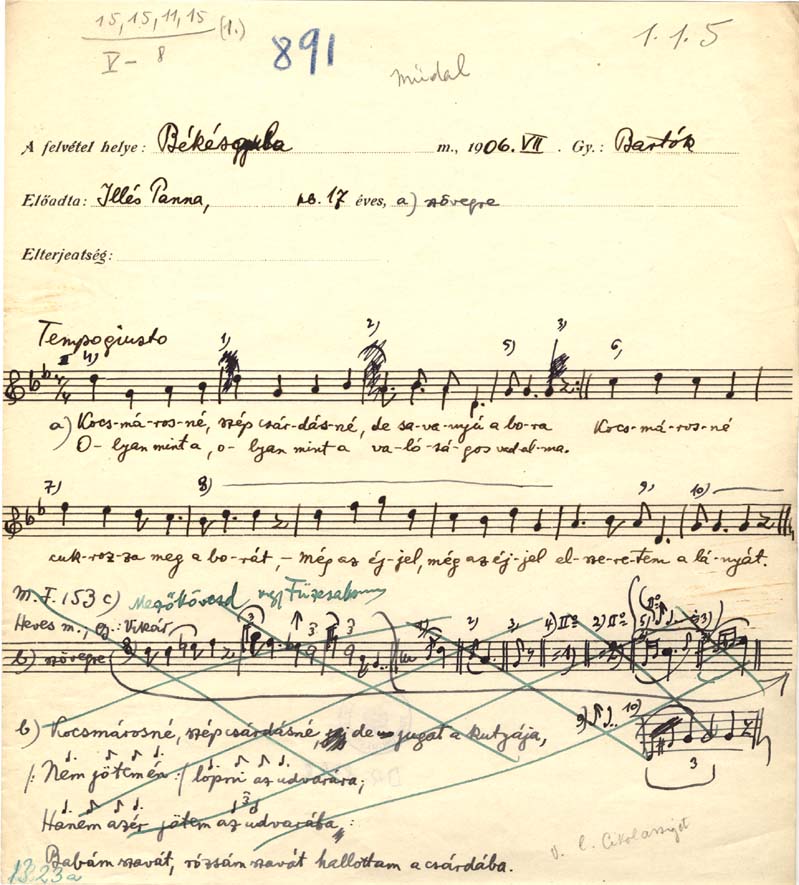 15, 15, 11, 15 (1.)
V – 8
891
1.1.5
műdal
A felvétel helye: Békésgyula m., 1906. VII. Gy.: Bartók
Előadta: Illés Panna, kb. 17 éves, a) szövegre
Elterjeatség:
Tempo giusto
1) 2) 3)
4) 5) 6)
a) Kocs-má-ros-né, szép csár-dás-né, de sa-va-nyú a bo-ra Kocs-má-ros-né
O-lyan mint a, o-lyan mint a va-ló-sá-gos ved-el-ma.
7) 8) 9) 10)
cuk-roz-za meg a bo-rát, – még az éj-jel, még az éj-jel el-sze-re-tem a lá-nyát.
M. F. 153 c) Mezőkövesd
Heves m., gy.: Vikár
b) szövegre
1) 2) 3) 4) IIº 2) IIº 5) IIº 3)
9) 10)
3
b) Kocsmárosné, szép csárdásné, de ugat a kutyája,
/: Nem jöttem én :/ lopni az udvarára;
Hanem azér jöttem az udvarába:
Babám szavát, rózsám szavát hallottam a csárdába.
v. l. Csikolasziget
13.23a